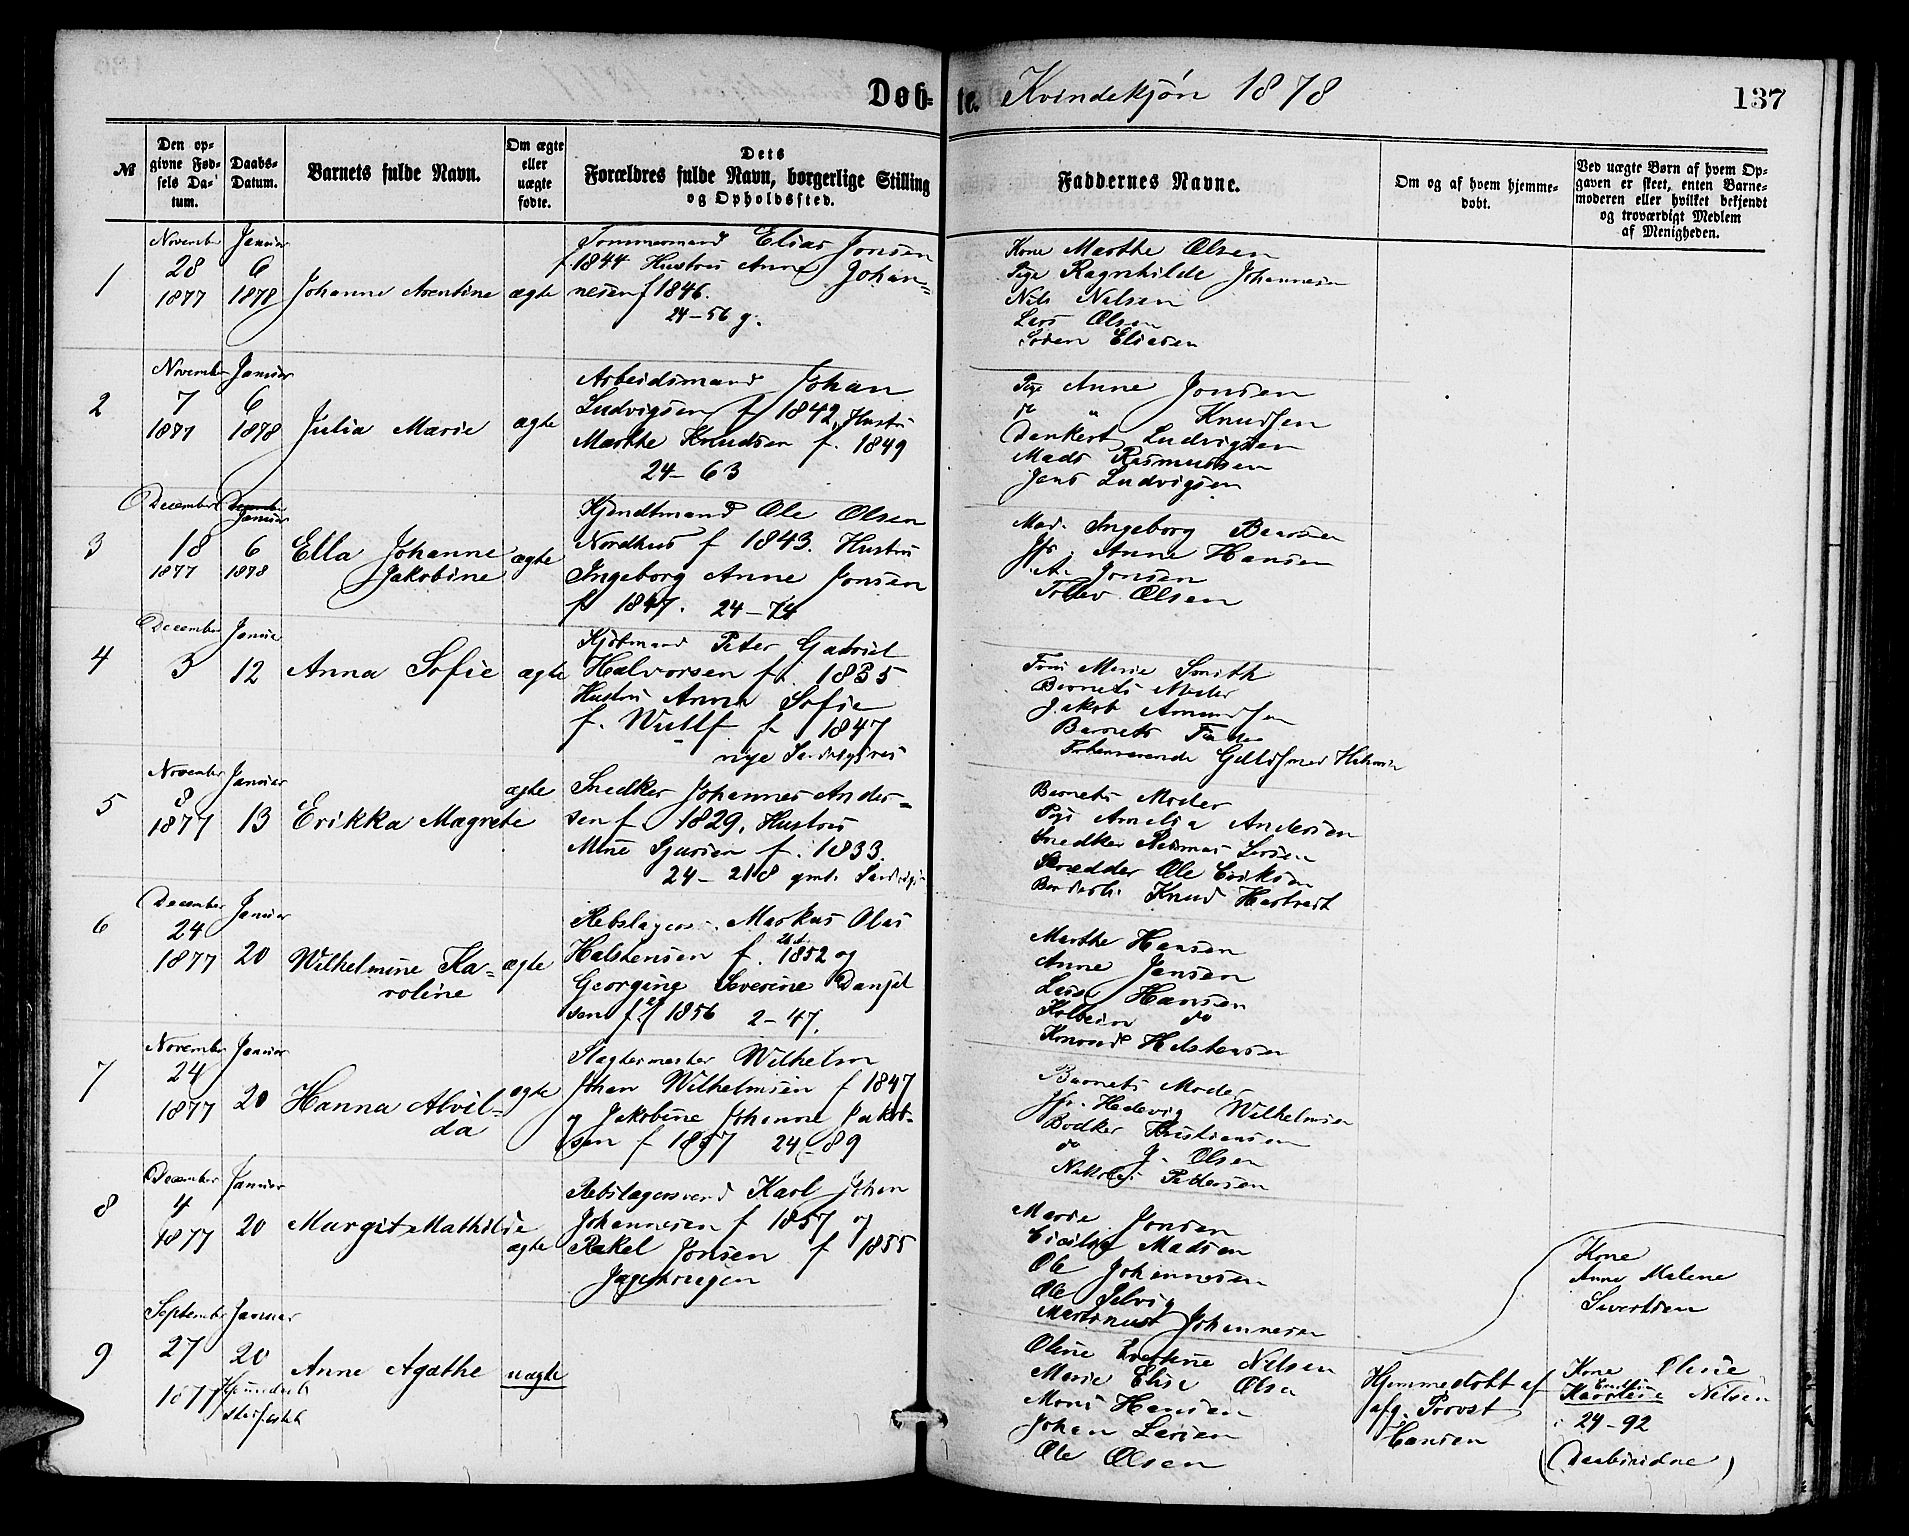 Døb-
te. Kvindekjøn 1878
137
№
Den op-
givne Fød-
sels Da-
tum.
Daabs-
Datum.
Barnets fulde Navn.
Om ægte
eller
uægte
fødte.
Dets
Forældres fulde Navn, borgerlige Stilling
og Opholdssted.
Faddernes Navne.
Om og af hvem hjemme-
døbt.
Ved uægte Børn af hvem Op-
gaven er skeet, enten Barne-
moderen eller hvilket bekjendt
og troværdigt Medlem
af Menigheden.
1
November
28
1877
Januar
6
1878
Johanne Arentine
ægte
Tømmermand Elias Jonsen
f. 1844 Hustru Anne Johan-
nesen f 1846.
24-56 g.
Kone Marthe Olsen
Pige Ragnhilde Johannesen
Nils Nilsen
Lars Olsen
Søren Eliasen
2
November
7
1877
Januar
6
1878
Julia Marie
ægte
Arbeidsmand Johan
Ludvigsen f 1842, Hustru
Marthe Knudsen f. 1849
24-63
Pige Anne Jonsen
do " Knudsen
Dankert Ludvigsen
Mads Rasmussen
Jens Ludvigsen
3
December
18
1877
Januar
6
1878
Ella Johanne
Jakobine
ægte
Kjendtmand Ole Olsen
Nordhus f 1843. Hustru
Ingeborg Anne Jonsen
f 1847. 24-74
Mad. Ingeborg
Jfr. Anne Hansen
A. Jonsen
Tollev Olsen
4
December
3
Januar
12
Anna Sofie
ægte
Kjøbmand Peter Gabriel
Halvorsen f. 1835
Hustru Anna Sofie
f. Wulff f 1847
nye
Frue Marie Smith
Barnets Moder
Jakob Amundsen
Barnets Fader
5
November
8
1877
Januar
13
Erikka Magrete
ægte
Snedker Johannes Ander-
sen f 1829, Hustru
Mine Sjursen f. 1833.
24-218
Barnets Moder
Pige Amelia Andersen
Snedker Rasmus Larsen
Skrædder Ole Eriksen
Knud
6
December
24
1877
Januar
20
Wilhelmine Ka-
roline
ægte
Markus Olas
Halstensen f. 1852 og
Georgine Severine Danjel
sen f. 1856 2-47.
Marthe Hansen
Anne Jansen
Lars Hansen
Kolbein do
Konrad Halstensen
7
November
24
1877
Januar
20
Hanna Alvil-
da
ægte
Slagtermester Wilhelm
Johan Wilhelmsen f 1847
og Jakobine Johanne Jakob-
sen f 1857 24-89
Barnets Moder
Jfr. Hedevig Wilhelmsen
Bødker Kristiansen
do J. Olsen
Nikolai Pedersen
8
December
4
1877
Januar
20
Margit Mathilde
ægte
Rebslagersvend Karl Johan
Johannesen f 1857 og
Rakel Jonsen f 1855
Marie Jonsen
Madsen
Ole Johannesen
Ole Selvig
Martinus Johannesen
Kone
Anne Malene
Sivertsen
9
September
27
1877
Januar
20
Anne Agathe
uægte
Oline Nilsen
Marie Elise Olsen
Mons Hansen
Johan Larsen
Ole Olsen
Hjemmedøbt af
afg. Provst
Hansen
Kone Oline
Nilsen
24-92